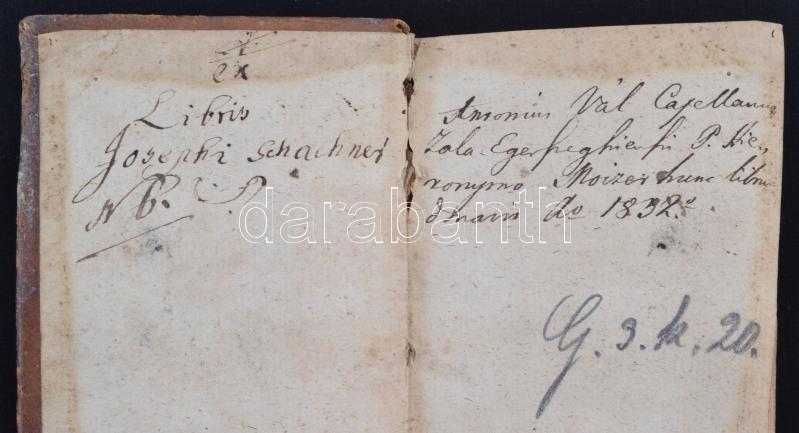 ex
Libris
Josephi Schachner
Nb.
Antonius Vál Capellanus
Zala-Egerszeghiensis P. Hie-
ronymo Moizer hunc libru
donavi Ao 1832.o
G. 3. k. 20.
darabanth